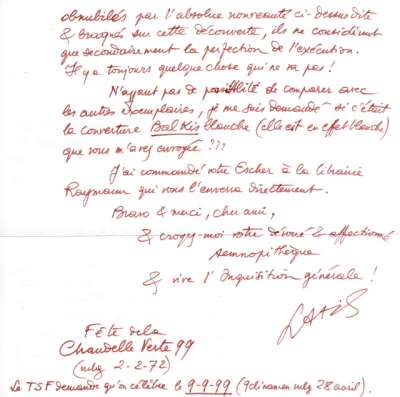 obnubilés par l'absolue nouveauté ci-dessus dite
& braqués sur cette découverte, ils ne considèrent
que secondairement la perfection de l'exécution.
Il y a toujours quelque chose qui ne va pas !
N'ayant pas de possibilité de comparer avec
les autres exemplaires, je me suis demandé si c'était
la couverture BalKis blanche (elle est en effet blanche)
que vous m'avez envoyée ???
J'ai commandé votre Escher à la librairie
Raymann qui vous l'enverra directement.
Bravo & merci, cher ami,
& croyez-moi votre dévoué & affectionné
semnopithèque
& vive l'Inquisition générale !
LATIS
Fête de la
Chandelle Verte 99
(vulg 2-2-72)
Le TSF demande qu'on célèbre le 9-9-99 (9 clinamen vulg 28 avril).